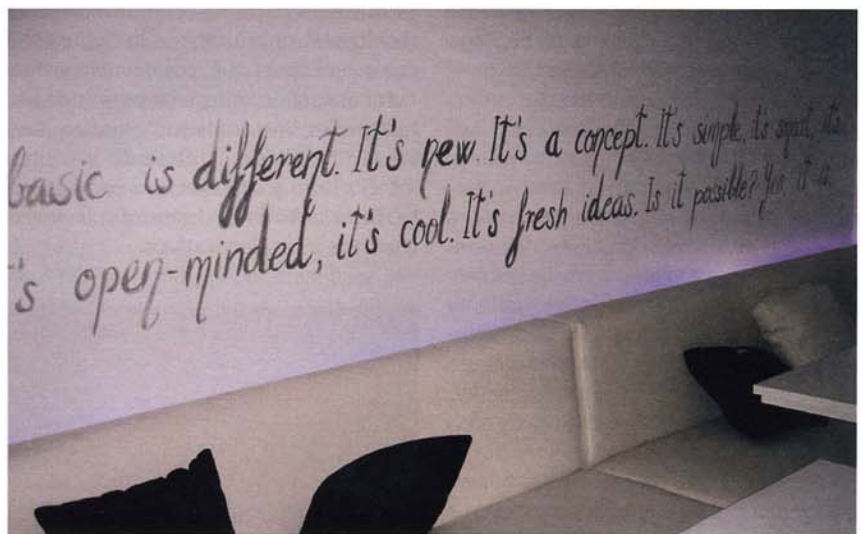 basic is different. It's new. It's a concept. It's simple, it's smart, it's
's open-minded, it's cool. It's fresh ideas. Is it possible? Yes it is.